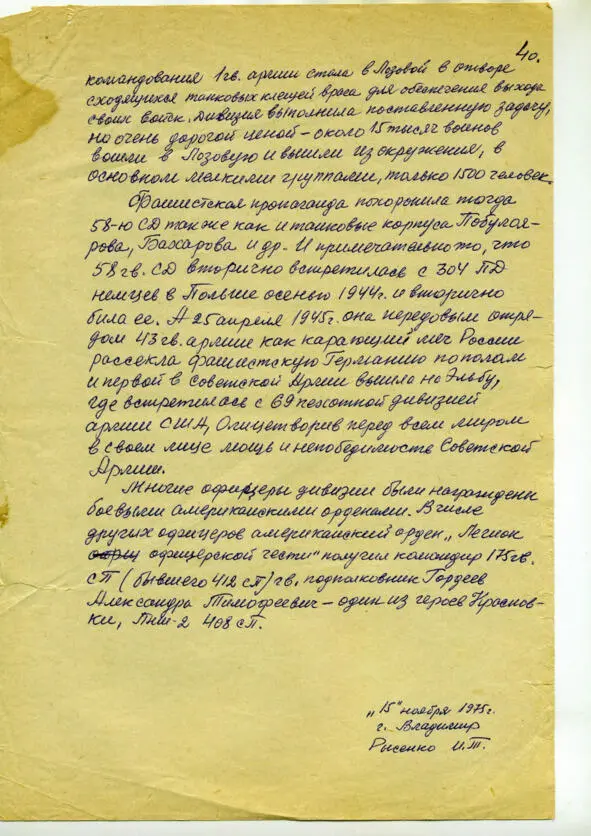 40.
командования 1гв. армии стала в Лозовой в отворе
сходящихся танковых клещей врага для обеспечения выхода
своих войск. Дивизия выполнила поставленную задачу,
но очень дорогой ценой – около 15 тысяч воинов
вошли в Лозовую и вышли из окружения, в
основном мелкими группами, только 1500 человек.
Фашистская пропаганда похоронила тогда
58-ю СД также как и танковые корпуса Побулоя-
рова, Бахарова и др. И примечательно то, что
58 гв. СД вторично встретилась с 304 ПД
немцев в Польше осенью 1944г. и вторично
била ее. А 25 апреля 1945г. она передовым отря-
дом 43 гв. армии как карающий меч России
рассекла фашистскую Германию пополам
и первой в Советской Армии вышла на Эльбу,
где встретилась с 69 пехотной дивизией
армии США, Олицетворив перед всем миром
в своем лице мощь и непобедимость Советской
Армии.
Многие офицеры дивизии были награждены
боевыми американскими орденами. В числе
других офицеров американский орден „Легион
офицерской чести" получил командир 175гв.
сп (бывшего 412 сп) гв. подполковник Гордеев
Александра Тимофеевич – один из героев Красnов-
ки, ПНШ-2 408 сп.
„15" ноября 1975г.
г. Владимир
Рысенко И.Т.